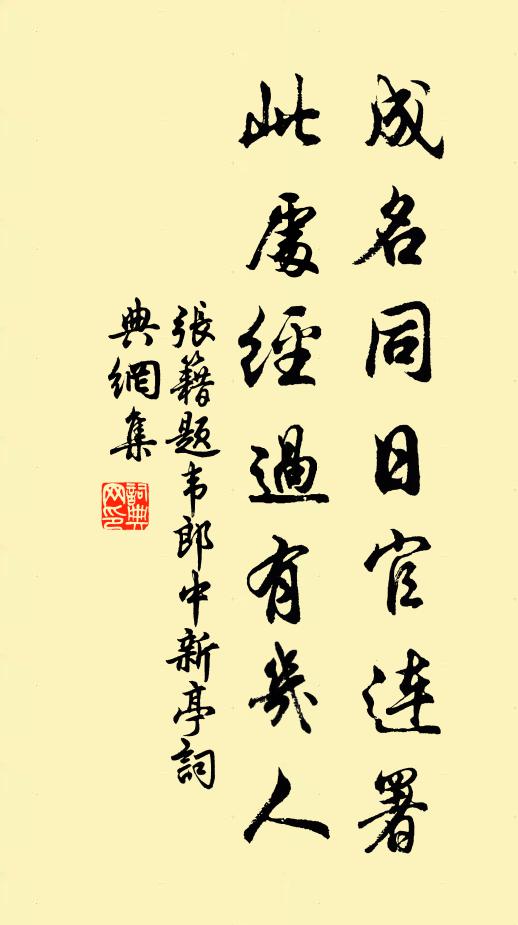 成名同日官連署
此處經過有幾人
張籍題韦郎中新亭詞
典網集
詞典
网印